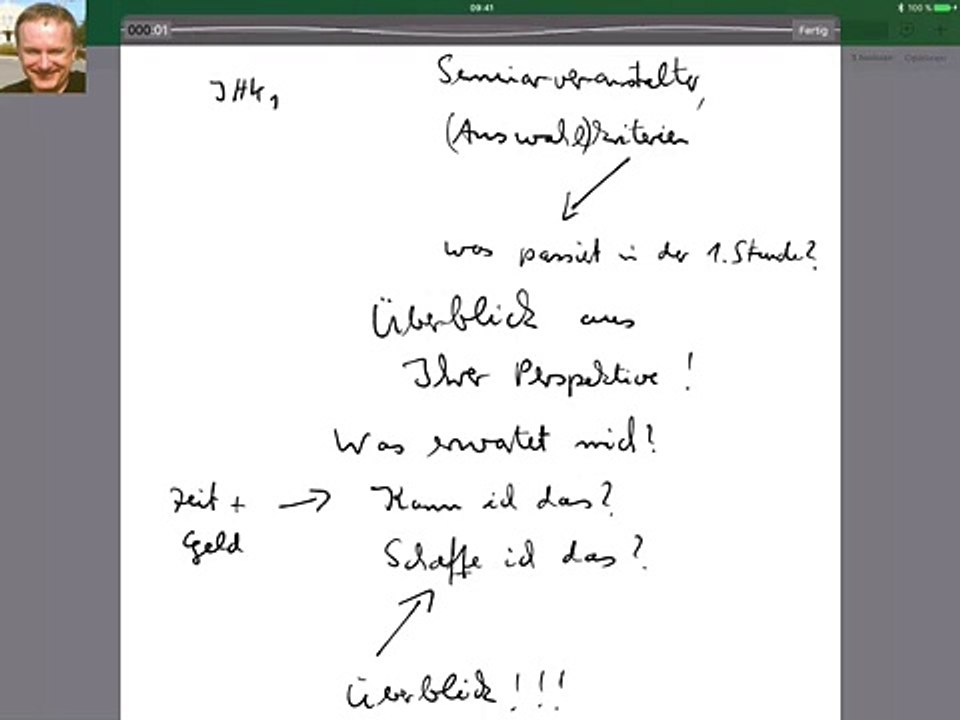 09:41
100 %
000:01
Fertig
IHK,
Seminarveranstalter,
(Auswahl)kriterien
was passiert in der 1. Stunde?
Überblick aus
Ihrer Perspektive!
Was erwartet mich?
Zeit + → Kann ich das?
Geld
Schaffe ich das?
Überblick!!!